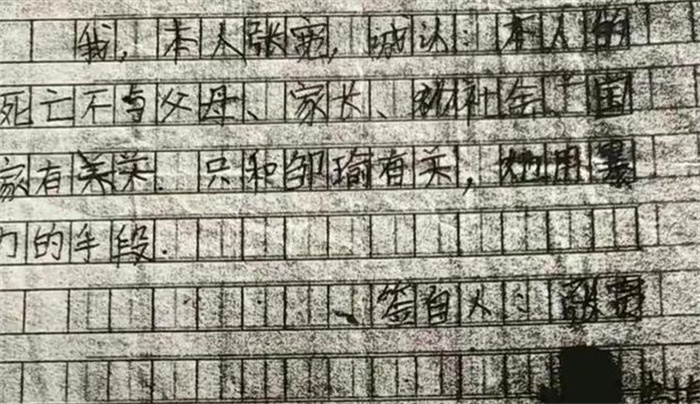 我，本人张宽，诚认：本人的
死亡不与父母、家长、社会、国
家有关关. 只和邹瑜有关，她用暴
力的手段.
签自人：张宽